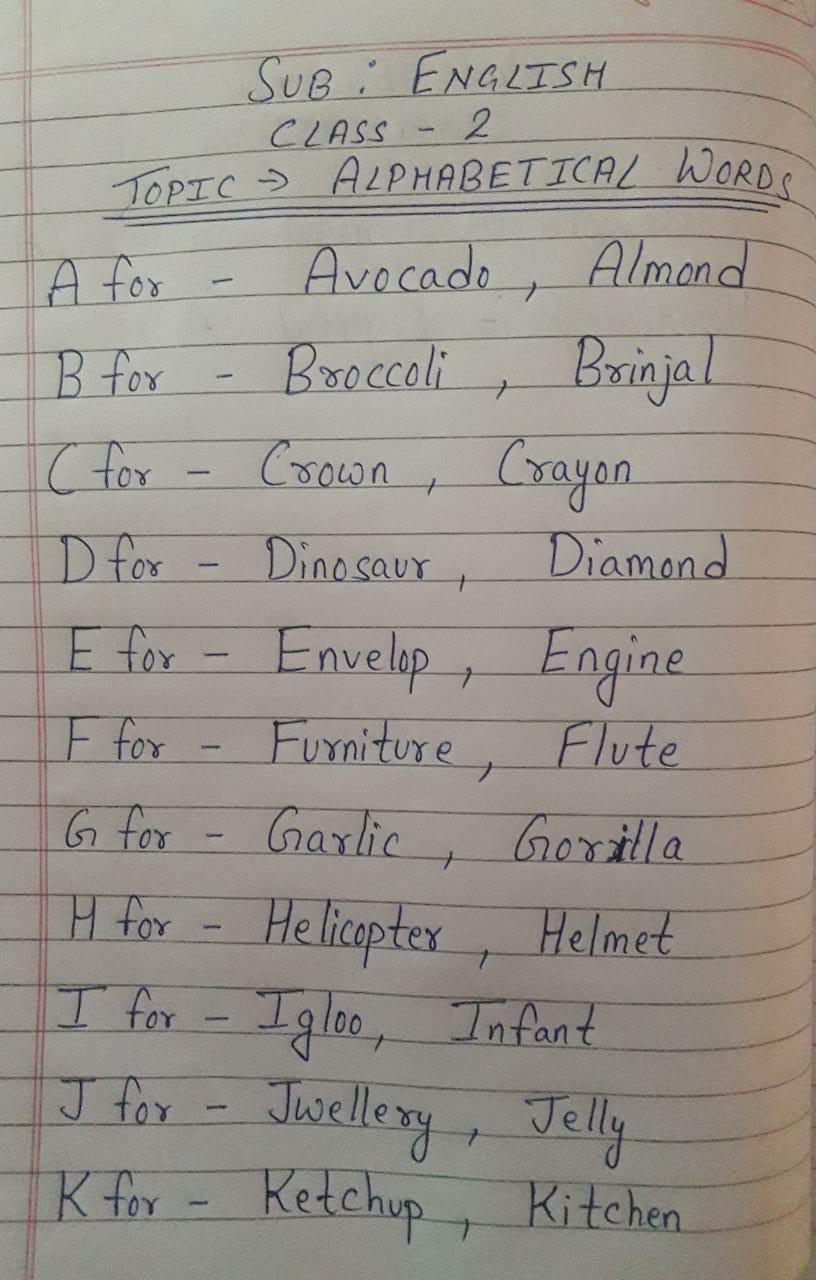 SUB : ENGLISH
CLASS - 2
TOPIC → ALPHABETICAL WORDS
A for - Avocado, Almond
B for - Broccoli, Brinjal
C for - Crown, Crayon
D for - Dinosaur, Diamond
E for - Envelop, Engine
F for - Furniture, Flute
G for - Garlic, Gorilla
H for - Helicopter, Helmet
I for - Igloo, Infant
J for - Jwellery, Jelly
K for - Ketchup, Kitchen